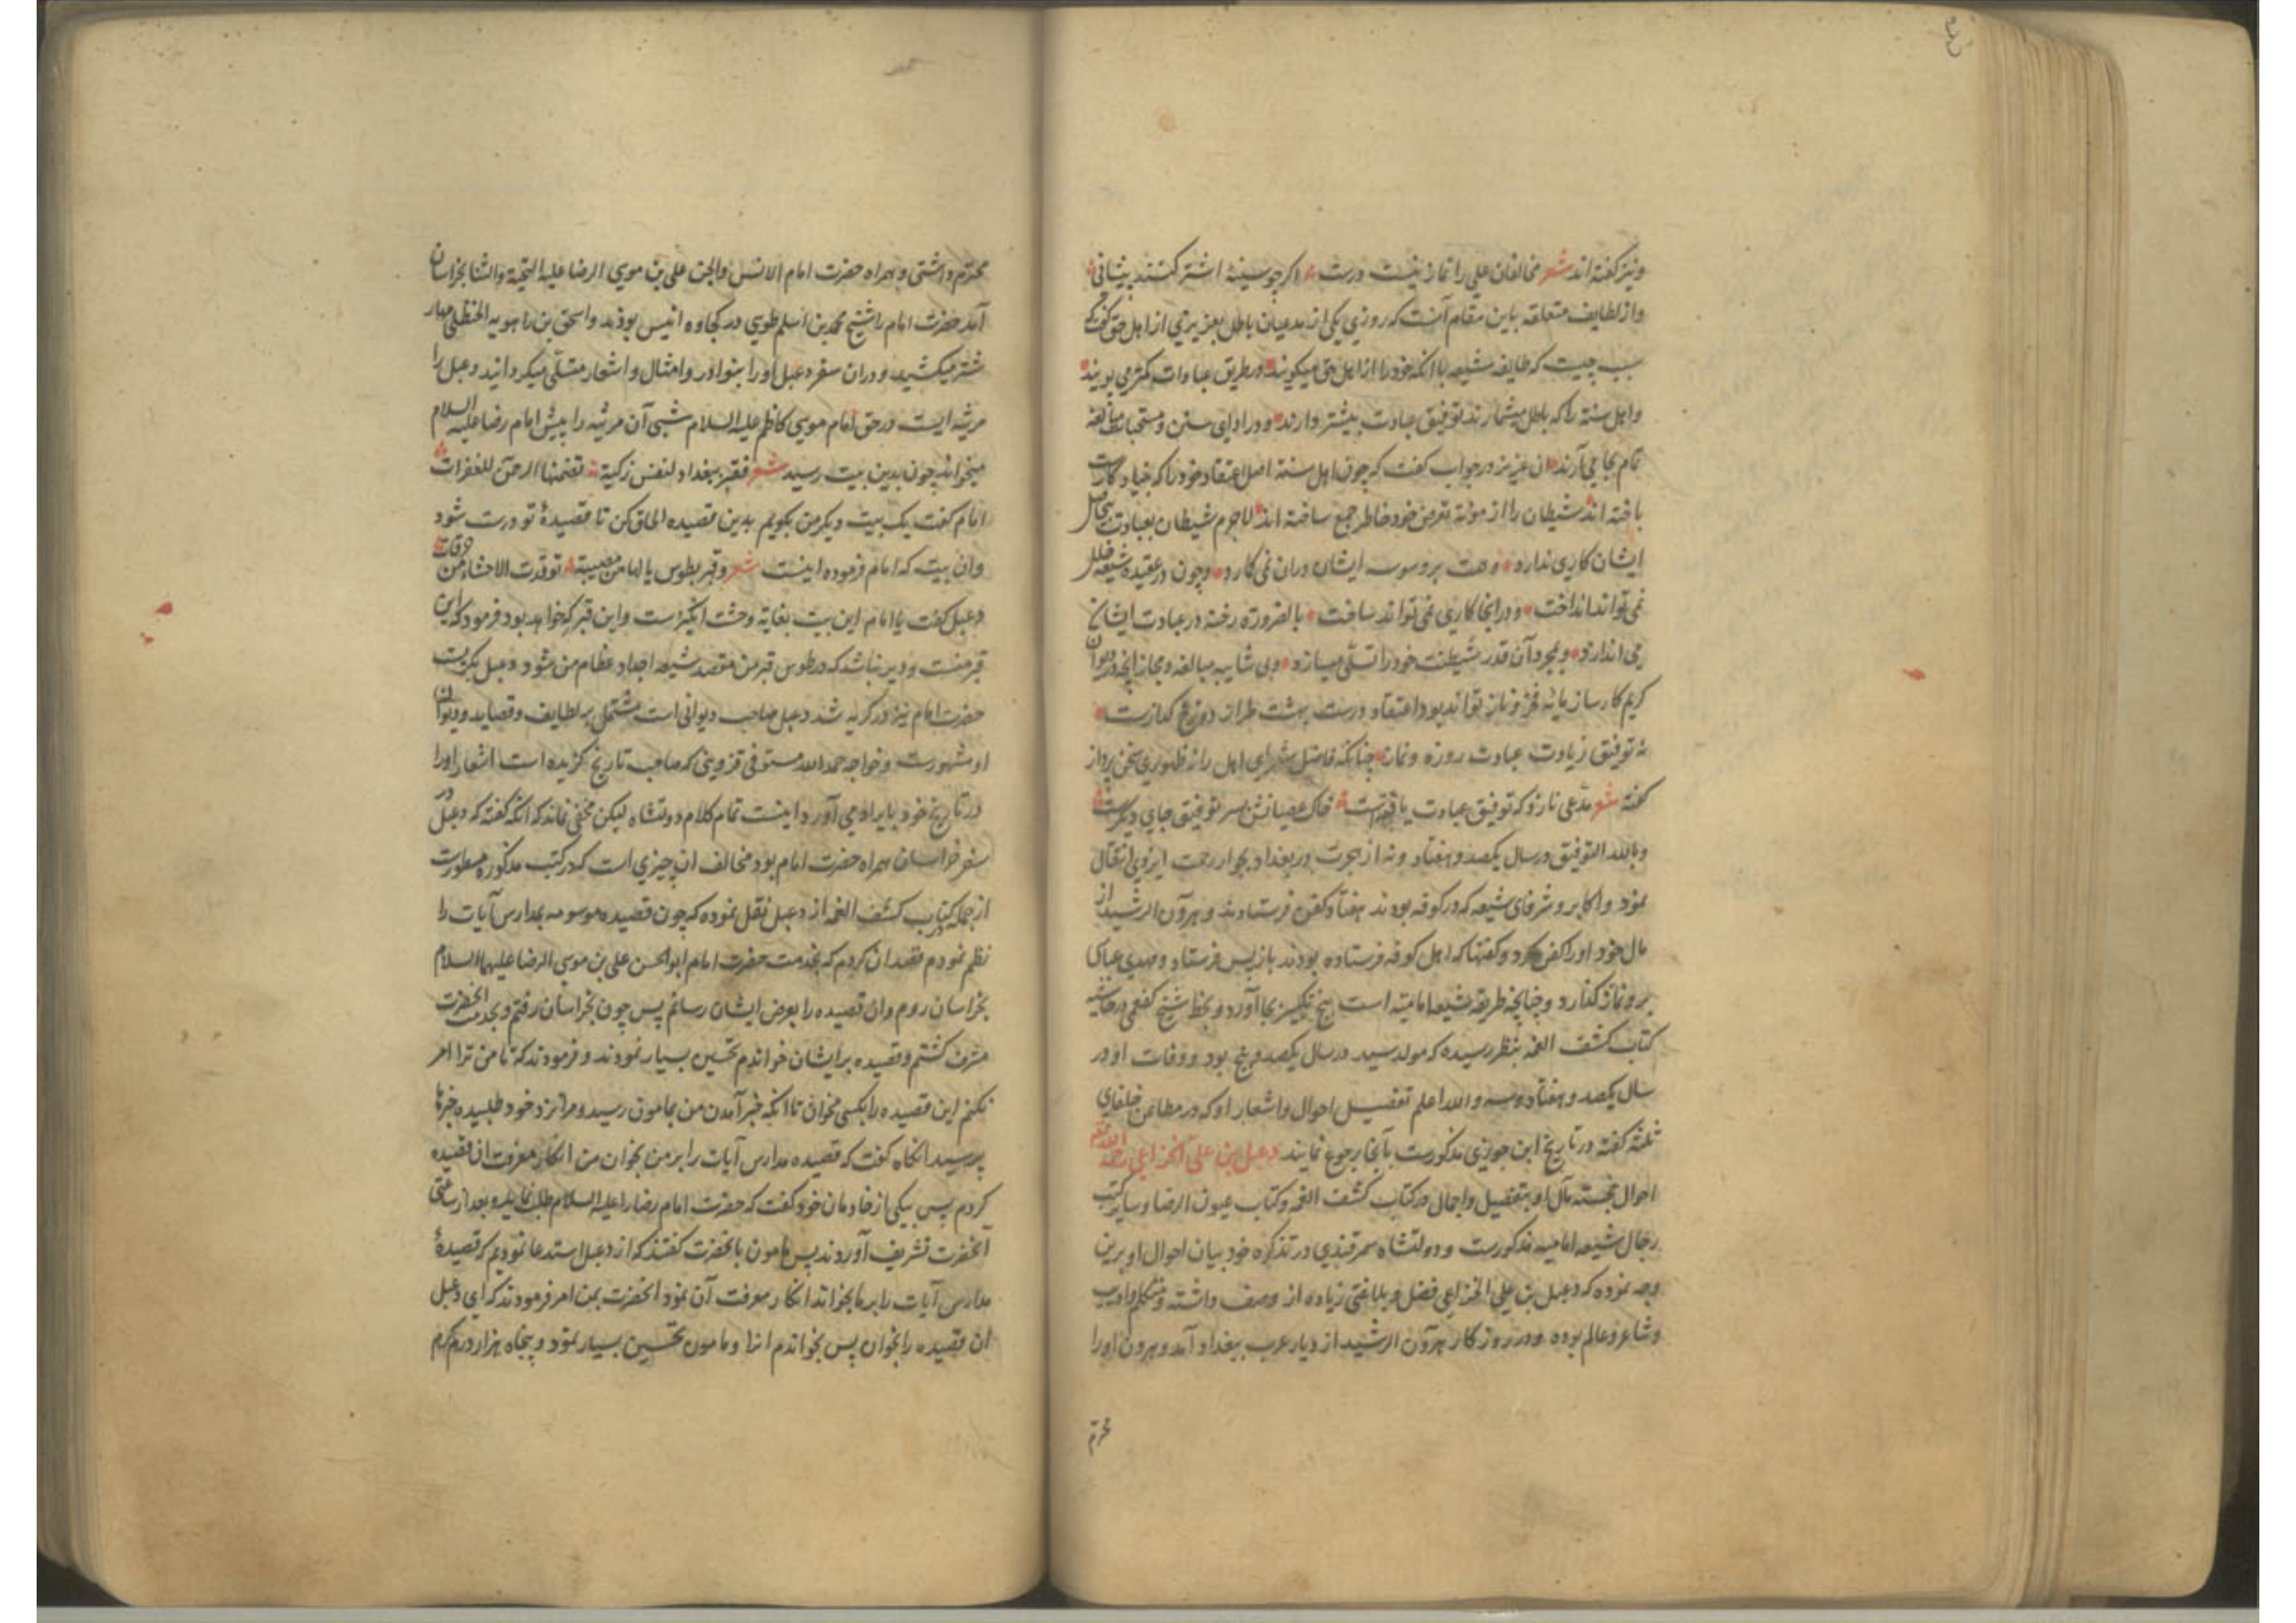 ونیز گفته اند شعر مخالفان علی را نماز نیست درست اگر چو سینه اشتر کنند پیشانی
واز لطایف متعلقه باین مقام آنست که روزی یکی از مدعیان باطل بعزیزی از اهل حق گفت که
سبب چیست که طایفه شیعه با انکه خود را از اهل حق میگویند در طریق عبادات کمتر می پویند
واهل سنة را که باطل میشمارند توفیق عبادت بیشتر دارند ودر ادای سنن ومستحبات مبالغه
تمام بجا می آرند ان عزیز در جواب گفت که چون اهل سنة اصل اعتقاد خود را که بنیاد کارست
باخته اند شیطان را از مؤنة تعرض خود خاطر جمع ساخته اند لاجرم شیطان بعبادت بیحاصل
ایشان کاری ندارد وهمت بر وسوسه ایشان دران نمی کارد وچون در عقیده شیعه خلل
نمی تواند انداخت ودر انجا کاری نمی تواند ساخت بالضرورة رخنه در عبادت ایشان
می اندازد وبمجرد آن قدر شیطنت خود را تسلی میسازد وبی شایبه مبالغه ومجاز انچه در دیوان
کریم کارساز مایه فخر وناز تواند بود اعتقاد درست بهشت طراز دوزخ گدازست
نه توفیق زیادت عبادت روزه ونماز چنانکه فاضل شعرای اهل راز ظهوری سخن پرداز
گفته شعر مدعی نازد که توفیق عبادت یافتست خاک عصیانش بسر توفیق جای دیگرست
وبالله التوفیق در سال یکصد وهفتاد ونه از هجرت در بغداد بجوار رحمت ایزدی انتقال
نمود واکابر وشرفای شیعه که در کوفه بودند هفتاد کفن فرستادند وهرون الرشید از
مال خود اورا کفن کرد وکفنها که اهل کوفه فرستاده بودند بازپس فرستاد ومهدی عباسی
برو نماز گذارد وچنانچه طریقه شیعه امامیة است پنج تکبیر بجا آورد وبخط شیخ کفعمی در حاشیه
کتاب کشف الغمه بنظر رسیده که مولد سید در سال یکصد وپنج بود ووفات او در
سال یکصد وهفتاد وسه والله اعلم تفصیل احوال واشعار او که در مطاعن خلفای
ثلثه گفته در تاریخ ابن جوزی مذکورست بآنجا رجوع نمایند دعبل بن علی الخزاعی رحمه الله
احوال خجسته مآل او بتفصیل واجمال در کتاب کشف الغمه وکتاب عیون الرضا وسایر کتب
رجال شیعه امامیه مذکورست ودولتشاه سمرقندی در تذکره خود بیان احوال او برین
وجه نموده که دعبل بن علی الخزاعی فضل وبلاغتی زیاده از وصف داشته ومتکلم وادیب
وشاعر وعالم بوده ودر روزگار هرون الرشید از دیار عرب ببغداد آمد وهرون اورا
محترم
محترم داشتی وهمراه حضرت امام الانس والجن علی بن موسی الرضا علیه التحیة والثنا بخراسان
آمد حضرت امام را شیخ محمد بن اسلم طوسی در کجاوه انیس بودند واسحق بن راهویه الحنظلی مهار
شتر میکشید ودران سفر دعبل اورا بنوادر وامثال واشعار متسلی میگردانید دعبل را
مرثیه ایست در حق امام موسی کاظم علیه السلام شبی آن مرثیه را پیش امام رضا علیه السلام
میخواند چون بدین بیت رسید شعر فقبر ببغداد لنفس زکیة تضمنها الرحمن للغفرات
امام گفت یک بیت دیگر من بگویم بدین قصیده الحاق کن تا قصیدهٔ تو درست شود
وان بیت که امام فرموده اینست شعر وقبر بطوس یا لها من مصیبة توقدت الاحشاء من حرقات
دعبل گفت یا امام این بیت بغایة وحشت انگیزست واین قبر که خواهد بود فرمود که این
قبر منست ودیر نباشد که در طوس قبر من مقصد شیعه اجداد عظام من شود دعبل بگریست
حضرت امام نیز در گریه شد دعبل صاحب دیوانی است مشتمل بر لطایف وقصاید ودیوان
او مشهورست وخواجه حمد الله مستوفی قزوینی که صاحب تاریخ گزیده است اشعار اورا
در تاریخ خود بایراد می آورد اینست تمام کلام دولتشاه لیکن مخفی نماند که انکه گفته که دعبل در
سفر خراسان همراه حضرت امام بود مخالف ان چیزی است که در کتب مذکوره مسطورست
از جمله در کتاب کشف الغمه از دعبل نقل نموده که چون قصیده موسومه بمدارس آیات را
نظم نمودم قصد ان کردم که بخدمت حضرت امام ابو الحسن علی بن موسی الرضا علیهما السلام
بخراسان روم وان قصیده را بعرض ایشان رسانم پس چون بخراسان رفتم وبخدمت انحضرت
مشرف گشتم وقصیده بر ایشان خواندم تحسین بسیار نمودند وفرمودند که تا من ترا امر
نکنم این قصیده را بکسی مخوان تا انکه خبر آمدن من بمامون رسید ومرا نزد خود طلبیده خبرها
پرسید انگاه گفت که قصیده مدارس آیات را بر من بخوان من انکار معرفت ان قصیده
کردم پس بیکی از خادمان خود گفت که حضرت امام رضا را علیه السلام طلب نماید وبعد از ساعتی
آنحضرت تشریف آوردند پس مامون بانحضرت گفتند که از دعبل استدعا نمودیم که قصیدهٔ
مدارس آیات را بر ما بخواند انکار معرفت آن نمود انحضرت بمن امر فرمودند که ای دعبل
ان قصیده را بخوان پس بخواندم انرا ومامون تحسین بسیار نمود وپنجاه هزار درم کرم